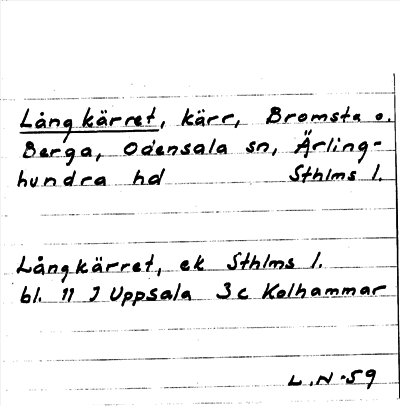 Långkärret, kärr, Bromsta o.
Berga, Odensala sn, Ärling-
hundra hd Sthlms l.
Långkärret, ek Sthlms l.
bl. 11 I Uppsala 3c Kolhammar
L.N.-59